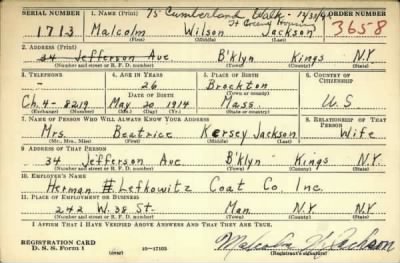 SERIAL NUMBER 1. NAME (Print) 75 Cumberland Walk - ORDER NUMBER
1713 Malcolm Wilson Jackson 3658
(First) (Middle) (Last)
2. ADDRESS (Print)
34 Jefferson Ave B'klyn Kings N.Y.
(Number and street or R. F. D. number) (Town) (County) (State)
3. TELEPHONE 4. AGE IN YEARS 5. PLACE OF BIRTH 6. COUNTRY OF CITIZENSHIP
- 26 Brockton
DATE OF BIRTH (Town or county)
Ch. 4-8219 May 20 1914 Mass. U S
(Exchange) (Number) (Mo.) (Day) (Yr.) (State or country)
7. NAME OF PERSON WHO WILL ALWAYS KNOW YOUR ADDRESS 8. RELATIONSHIP OF THAT PERSON
Mrs. Beatrice Kersey Jackson Wife
(Mr., Mrs., Miss) (First) (Middle) (Last)
9. ADDRESS OF THAT PERSON
34 Jefferson Ave. B'klyn Kings N.Y.
(Number and street or R. F. D. number) (Town) (County) (State)
10. EMPLOYER'S NAME
Herman H. Lefkowitz Coat Co. Inc.
11. PLACE OF EMPLOYMENT OR BUSINESS
242 W. 38 St- Man. N.Y. N.Y.
(Number and street or R. F. D. number) (Town) (County) (State)
I AFFIRM THAT I HAVE VERIFIED ABOVE ANSWERS AND THAT THEY ARE TRUE.
REGISTRATION CARD
D. S. S. Form 1 (over) 16-17105 Malcolm W. Jackson
(Registrant's signature)